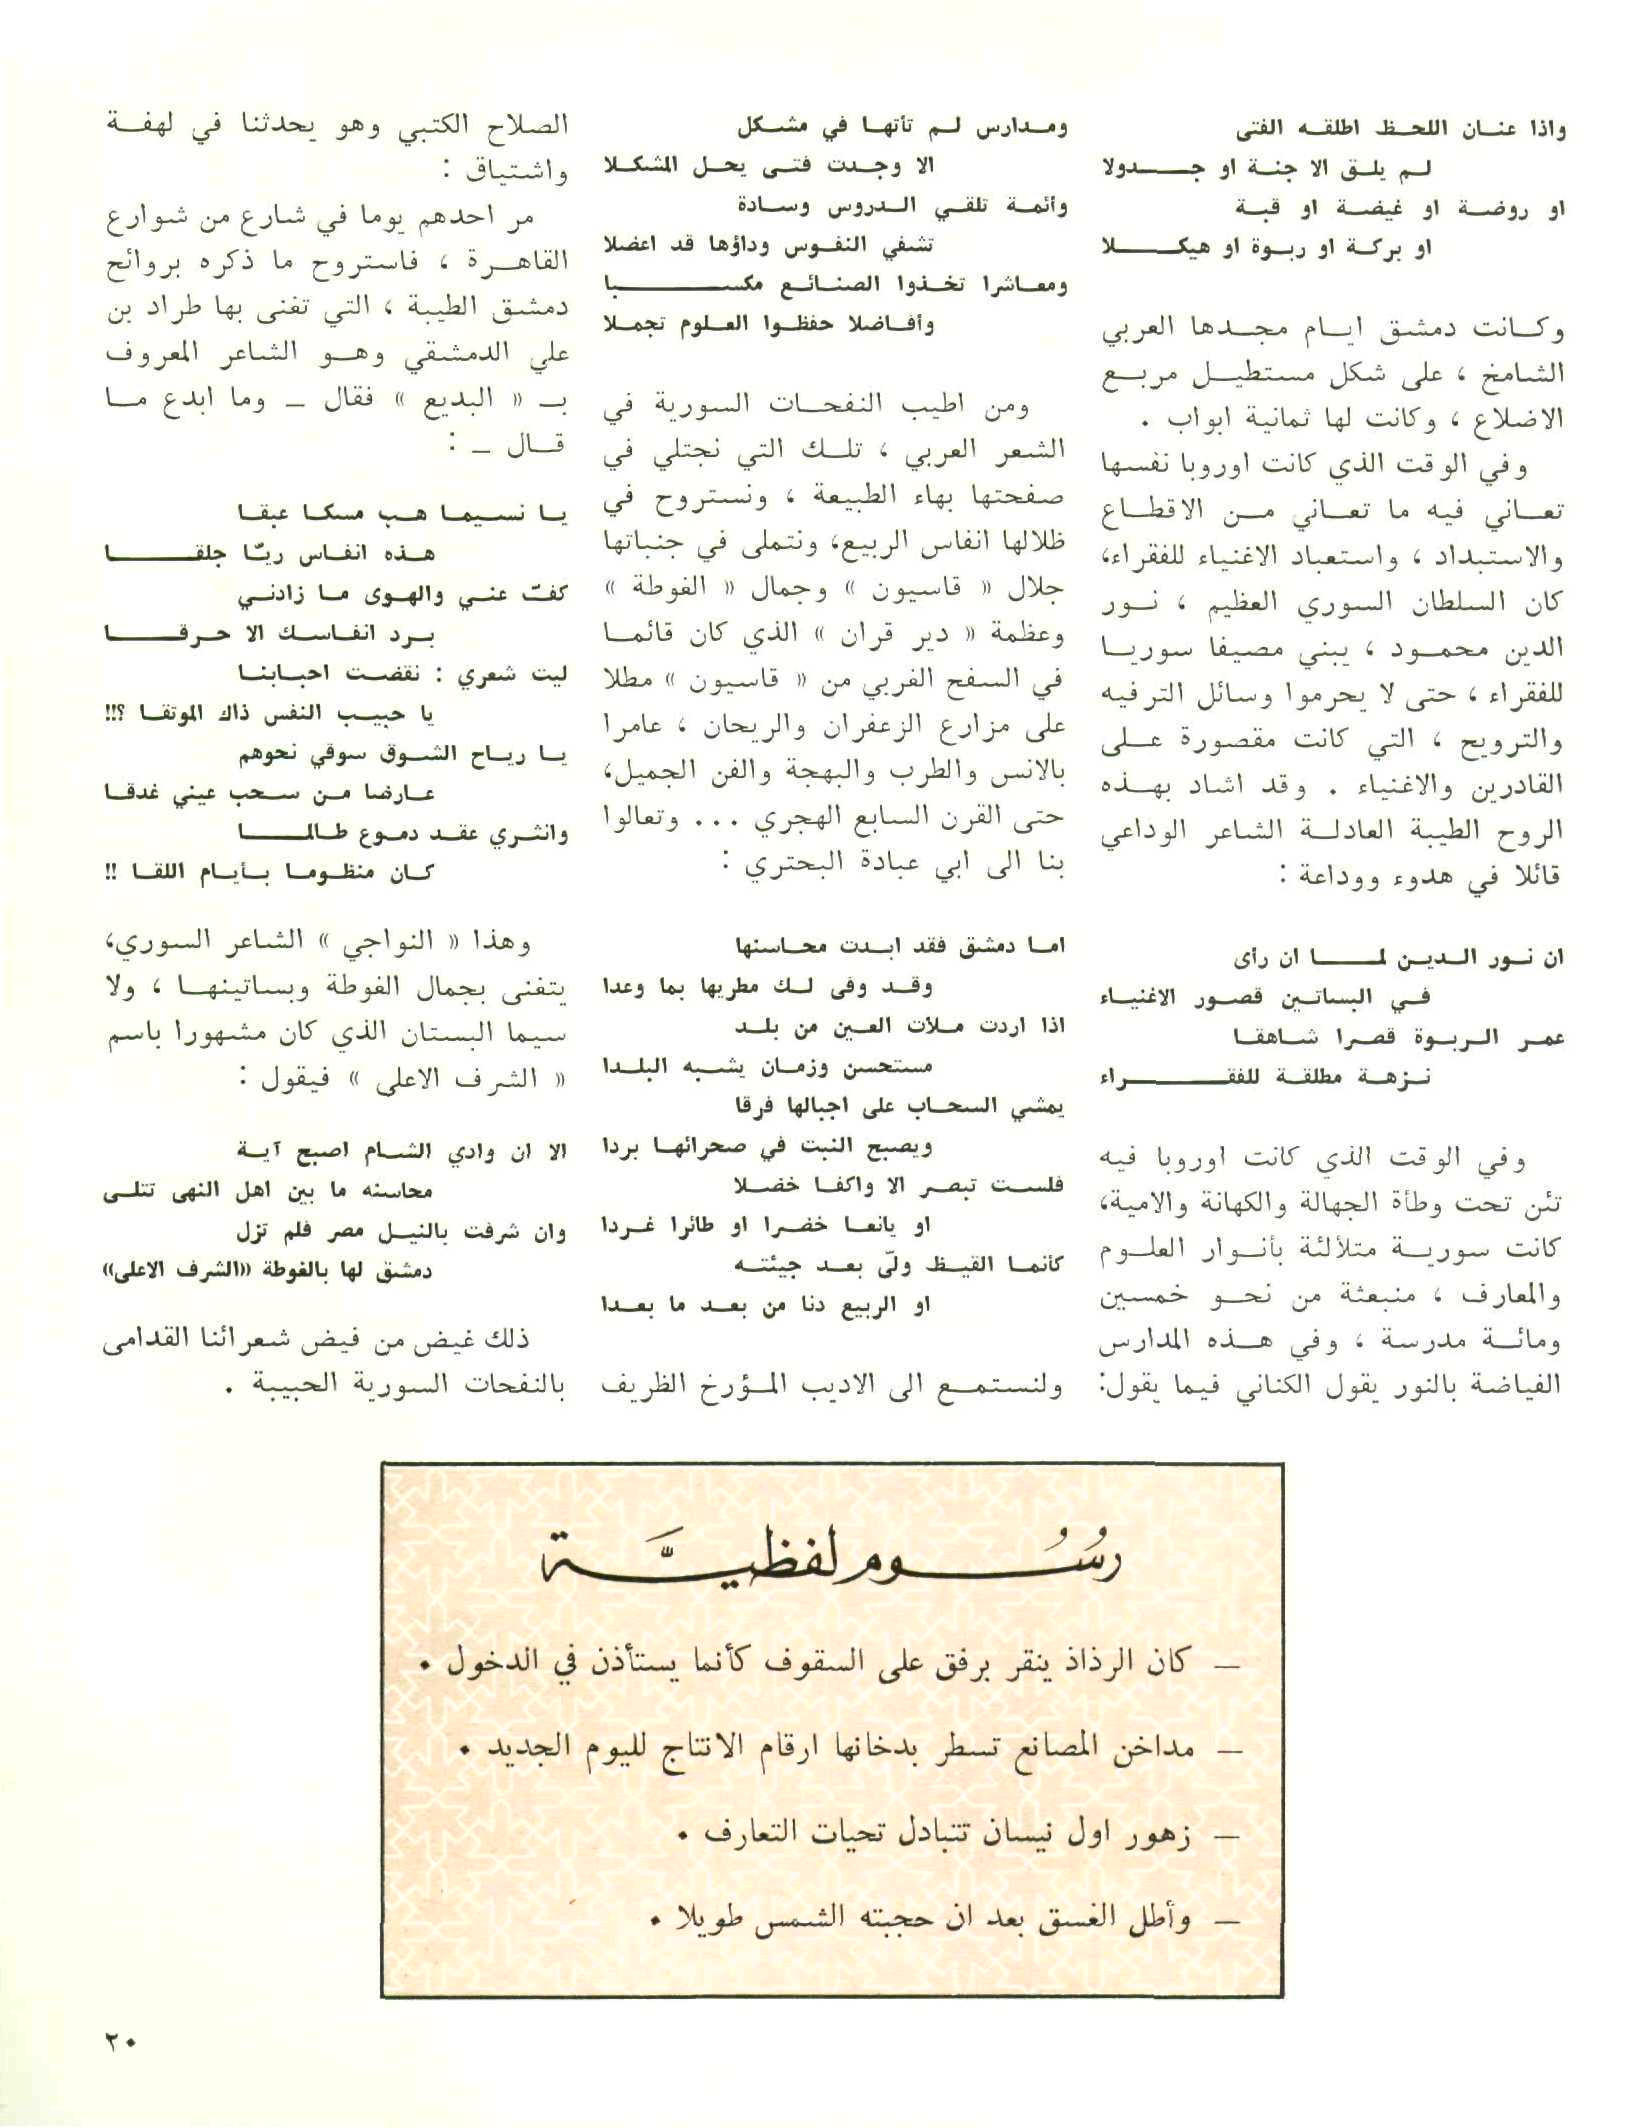 واذا عنان اللحظ اطلقه الفتى
لم يلق الا جنة او جدولا
او روضة او غيضة او قبة
او بركة او ربوة او هيكلا
وكانت دمشق ايام مجدها العربي
الشامخ ، على شكل مستطيل مربع
الاضلاع ، وكانت لها ثمانية ابواب .
وفي الوقت الذي كانت اوروبا نفسها
تعاني فيه ما تعاني من الاقطاع
والاستبداد ، واستعباد الاغنياء للفقراء،
كان السلطان السوري العظيم ، نور
الدين محمود ، يبني مصيفا سوريا
للفقراء ، حتى لا يحرموا وسائل الترفيه
والترويح ، التي كانت مقصورة على
القادرين والاغنياء . وقد اشاد بهذه
الروح الطيبة العادلة الشاعر الوداعي
قائلا في هدوء ووداعة :
ان نور الدين لما ان رأى
في البساتين قصور الاغنياء
عمر الربوة قصرا شاهقا
نزهة مطلقة للفقراء
وفي الوقت الذي كانت اوروبا فيه
تئن تحت وطأة الجهالة والكهانة والامية،
كانت سورية متلألئة بأنوار العلوم
والمعارف ، منبعثة من نحو خمسين
ومائة مدرسة ، وفي هذه المدارس
الفياضة بالنور يقول الكناني فيما يقول:
ومدارس لم تأتها في مشكل
الا وجدت فتى يحل المشكلا
وأئمة تلقي الدروس وسادة
تشفي النفوس وداؤها قد اعضلا
ومعاشرا تخذوا الصنائع مكسبا
وأفاضلا حفظوا العلوم تجملا
ومن اطيب النفحات السورية في
الشعر العربي ، تلك التي نجتلي في
صفحتها بهاء الطبيعة ، ونستروح في
ظلالها انفاس الربيع، ونتملى في جنباتها
جلال « قاسيون » وجمال « الغوطة »
وعظمة « دير قران » الذي كان قائما
في السفح الغربي من « قاسيون » مطلا
على مزارع الزعفران والريحان ، عامرا
بالانس والطرب والبهجة والفن الجميل،
حتى القرن السابع الهجري ... وتعالوا
بنا الى ابي عبادة البحتري :
اما دمشق فقد ابدت محاسنها
وقد وفى لك مطريها بما وعدا
اذا اردت ملأت العين من بلد
مستحسن وزمان يشبه البلدا
يمشي السحاب على اجبالها فرقا
ويصبح النبت في صحرائها بردا
فلست تبصر الا واكفا خضلا
او يانعا خضرا او طائرا غردا
كأنما القيظ ولّى بعد جيئته
او الربيع دنا من بعد ما بعدا
ولنستمع الى الاديب المؤرخ الظريف
الصلاح الكتبي وهو يحدثنا في لهفة
واشتياق :
مر احدهم يوما في شارع من شوارع
القاهرة ، فاستروح ما ذكره بروائح
دمشق الطيبة ، التي تغنى بها طراد بن
علي الدمشقي وهو الشاعر المعروف
بـ « البديع » فقال ـ وما ابدع ما
قال ـ :
يا نسيما هب مسكا عبقا
هذه انفاس ريّا جلقا
كفّ عني والهوى ما زادني
برد انفاسك الا حرقا
ليت شعري : نقضت احبابنا
يا حبيب النفس ذاك الموثقا ؟!!
يا رياح الشوق سوقي نحوهم
عارضا من سحب عيني غدقا
وانثري عقد دموع طالما
كان منظوما بأيام اللقا !!
وهذا « النواجي » الشاعر السوري،
يتغنى بجمال الغوطة وبساتينها ، ولا
سيما البستان الذي كان مشهورا باسم
« الشرف الاعلى » فيقول :
الا ان وادي الشام اصبح آية
محاسنه ما بين اهل النهى تتلى
وان شرفت بالنيل مصر فلم تزل
دمشق لها بالغوطة «الشرف الاعلى»
ذلك غيض من فيض شعرائنا القدامى
بالنفحات السورية الحبيبة .
رسُوم لفظيَّة
— كان الرذاذ ينقر برفق على السقوف كأنما يستأذن في الدخول .
— مداخن المصانع تسطر بدخانها ارقام الانتاج لليوم الجديد .
— زهور اول نيسان تتبادل تحيات التعارف .
— وأطل الغسق بعد ان حجبته الشمس طويلا .
٢٠